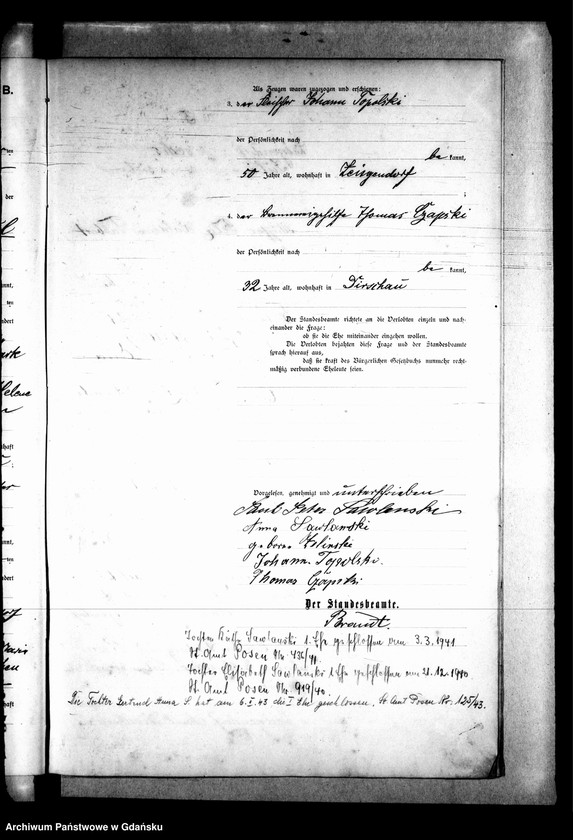 B.
Als Zeugen waren zugezogen und erschienen:
3. der Fleischer Johann Topolski
der Persönlichkeit nach
be kannt,
50 Jahre alt, wohnhaft in Zeisgendorf
;
4. der Thomas Czapski
der Persönlichkeit nach
be kannt,
32 Jahre alt, wohnhaft in Dirschau
Der Standesbeamte richtete an die Verlobten einzeln und nach-
einander die Frage:
ob sie die Ehe miteinander eingehen wollen.
Die Verlobten bejahten diese Frage und der Standesbeamte
sprach hierauf aus,
daß sie kraft des Bürgerlichen Gesetzbuchs nunmehr recht-
mäßig verbundene Eheleute seien.
Vorgelesen, genehmigt und unterschrieben
Peter Sawlenski
Anna Sawlawski
geborne Zelinski
Johann Topolski.
Thomas Czapski
Der Standesbeamte.
Brandt.
Tochter Käthe Sawlanski 1. Ehe geschlossen am 3.3.1941
St. Amt Posen Nr. 436/41.
Tochter Elisabeth Sawlanski 1 Ehe geschlossen am 21.12.1940
St. Amt Posen Nr. 919/40.
Die Tochter Gertrud Anna S. hat am 6.I.43 die I Ehe geschlossen. St Amt Posen Nr. 125/43.
Archiwum Państwowe w Gdańsku